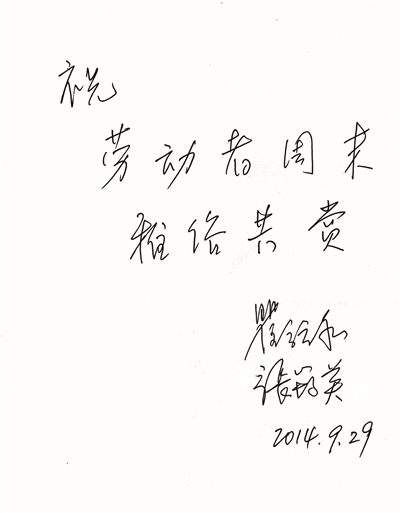 祝
劳动者周末
雅俗共赏
瞿弦和
张筠英
2014.9.29